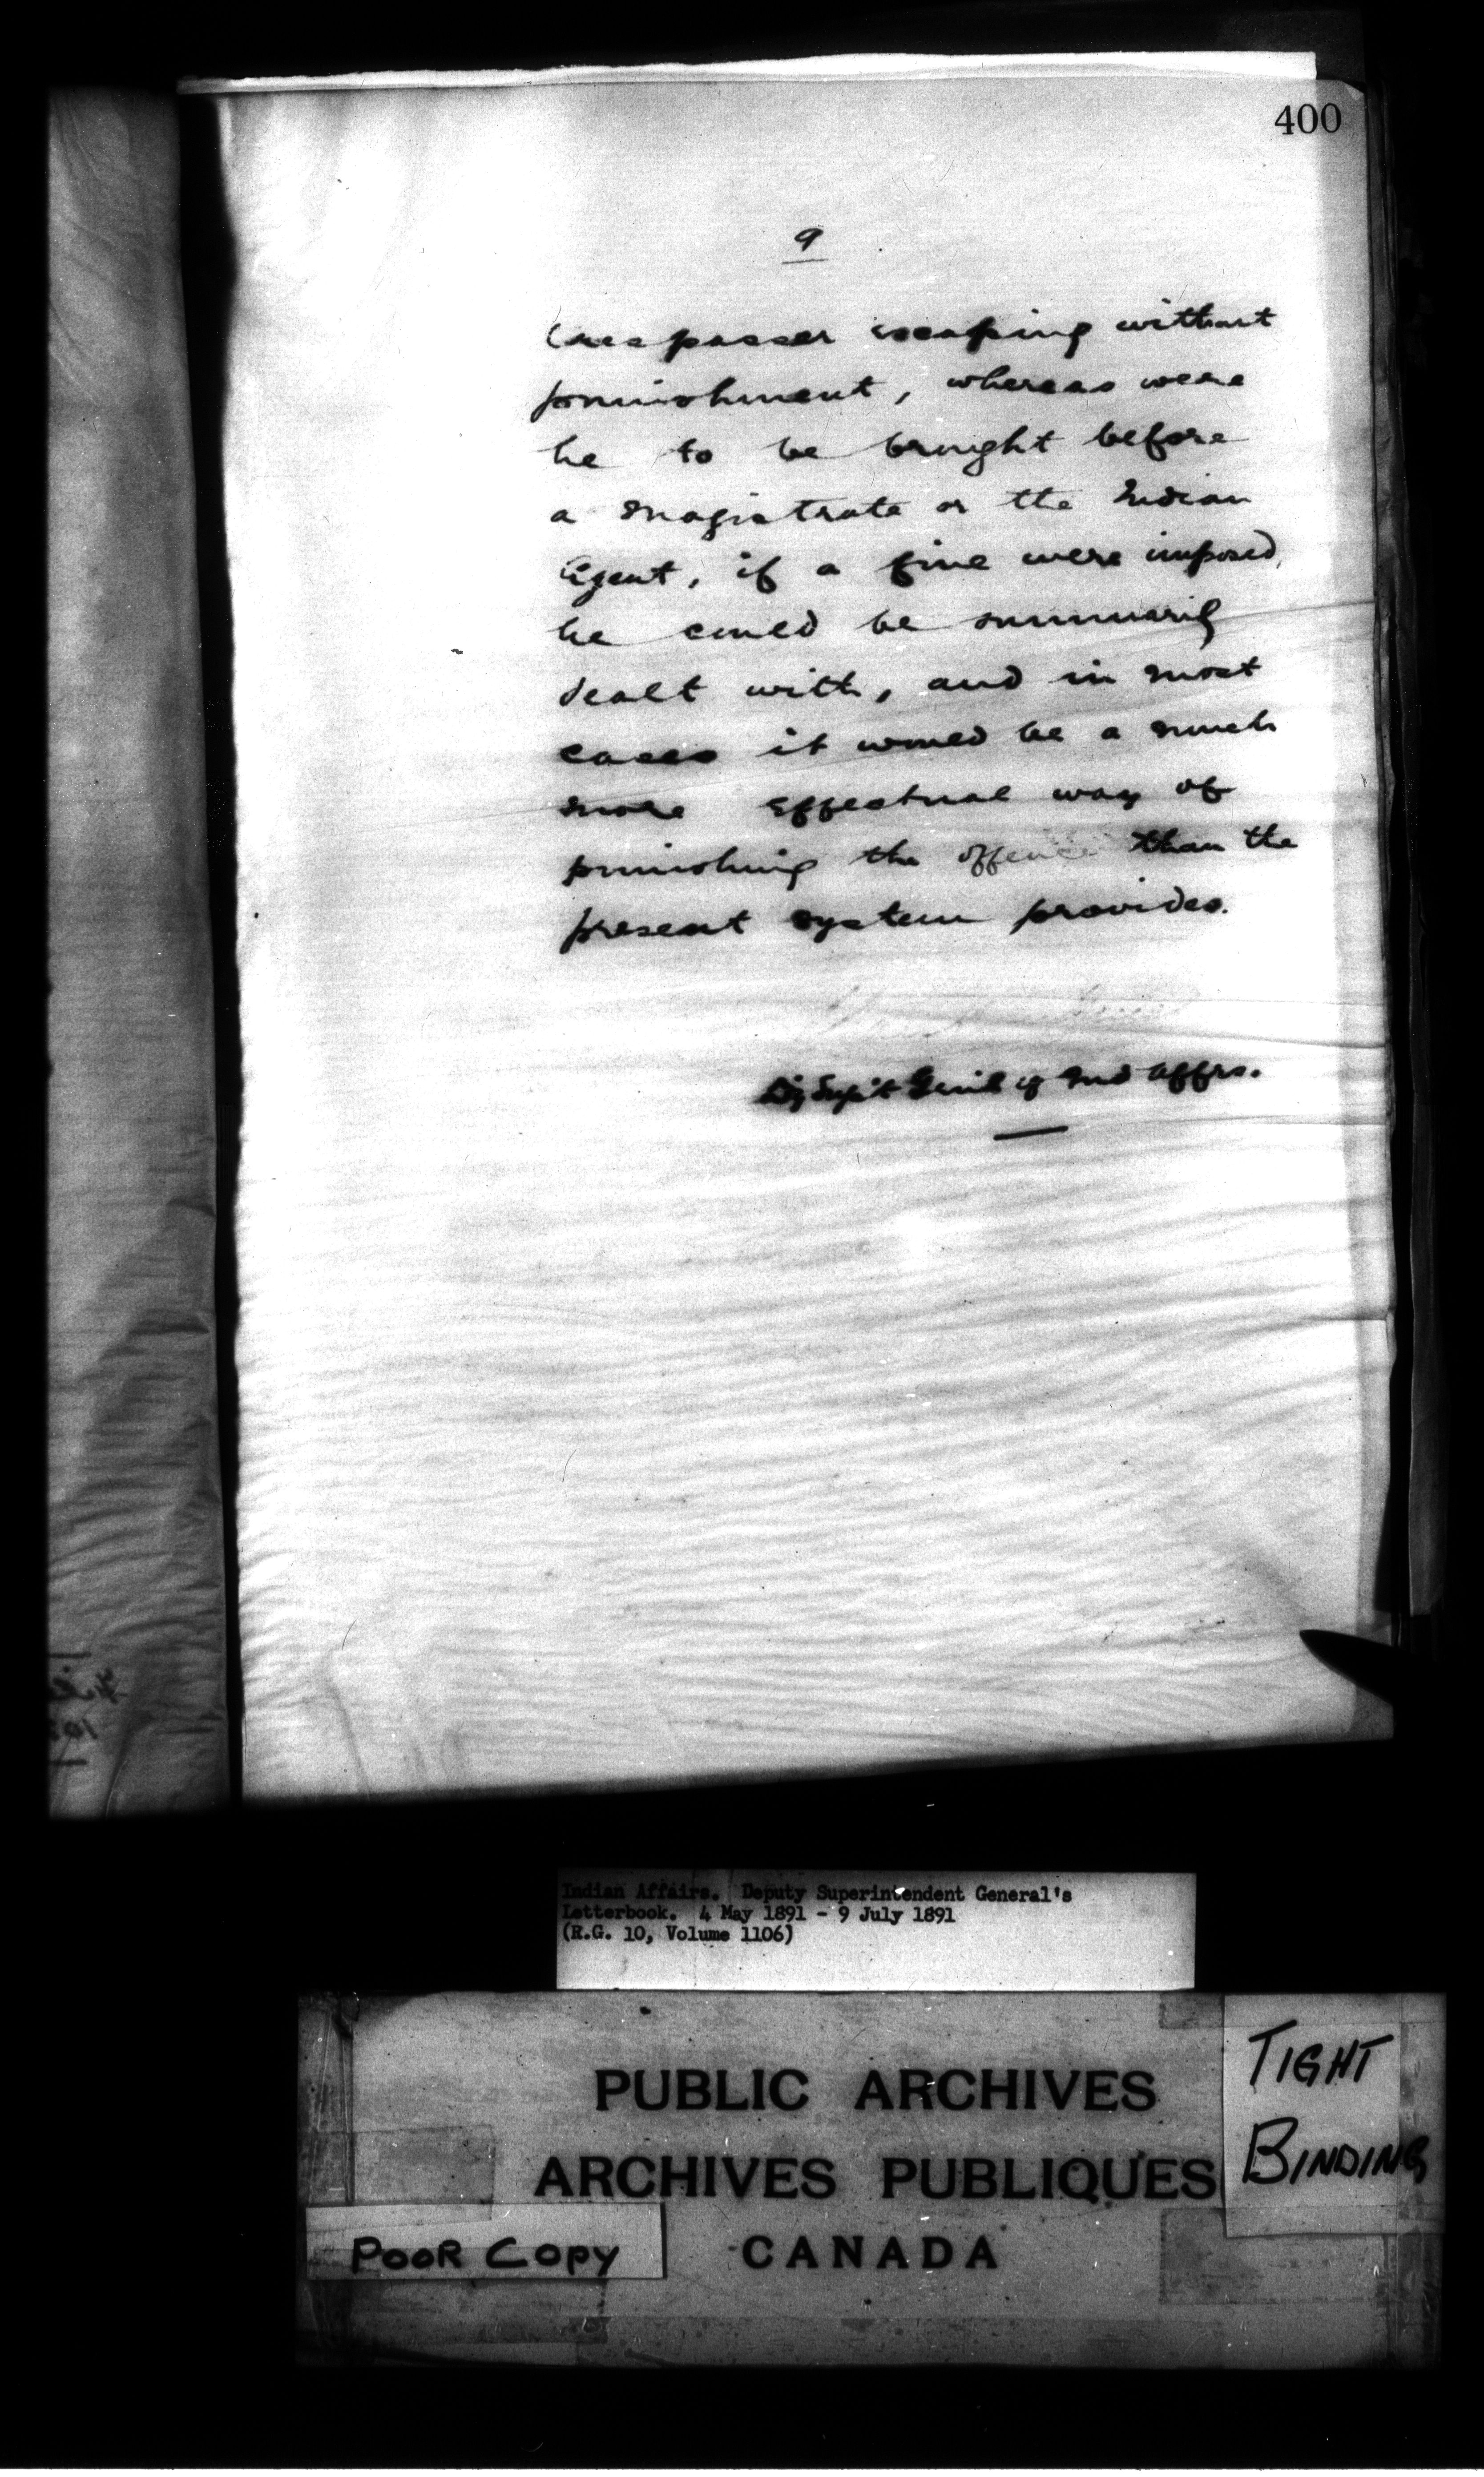 400
9
trespasser escaping without
punishment, whereas were
he to be brought before
a Magistrate or the Indian
Agent, if a fine were imposed,
he could be summarily
dealt with, and in most
cases it would be a much
more effectual way of
punishing the offence than the
present system provides.
Dy Supt Genl of Ind Affrs.
Indian Affairs. Deputy Superintendent General's
Letterbook. 4 May 1891 - 9 July 1891
(R.G. 10, Volume 1106)
PUBLIC ARCHIVES
ARCHIVES PUBLIQUES
CANADA
TIGHT
BINDING
POOR COPY